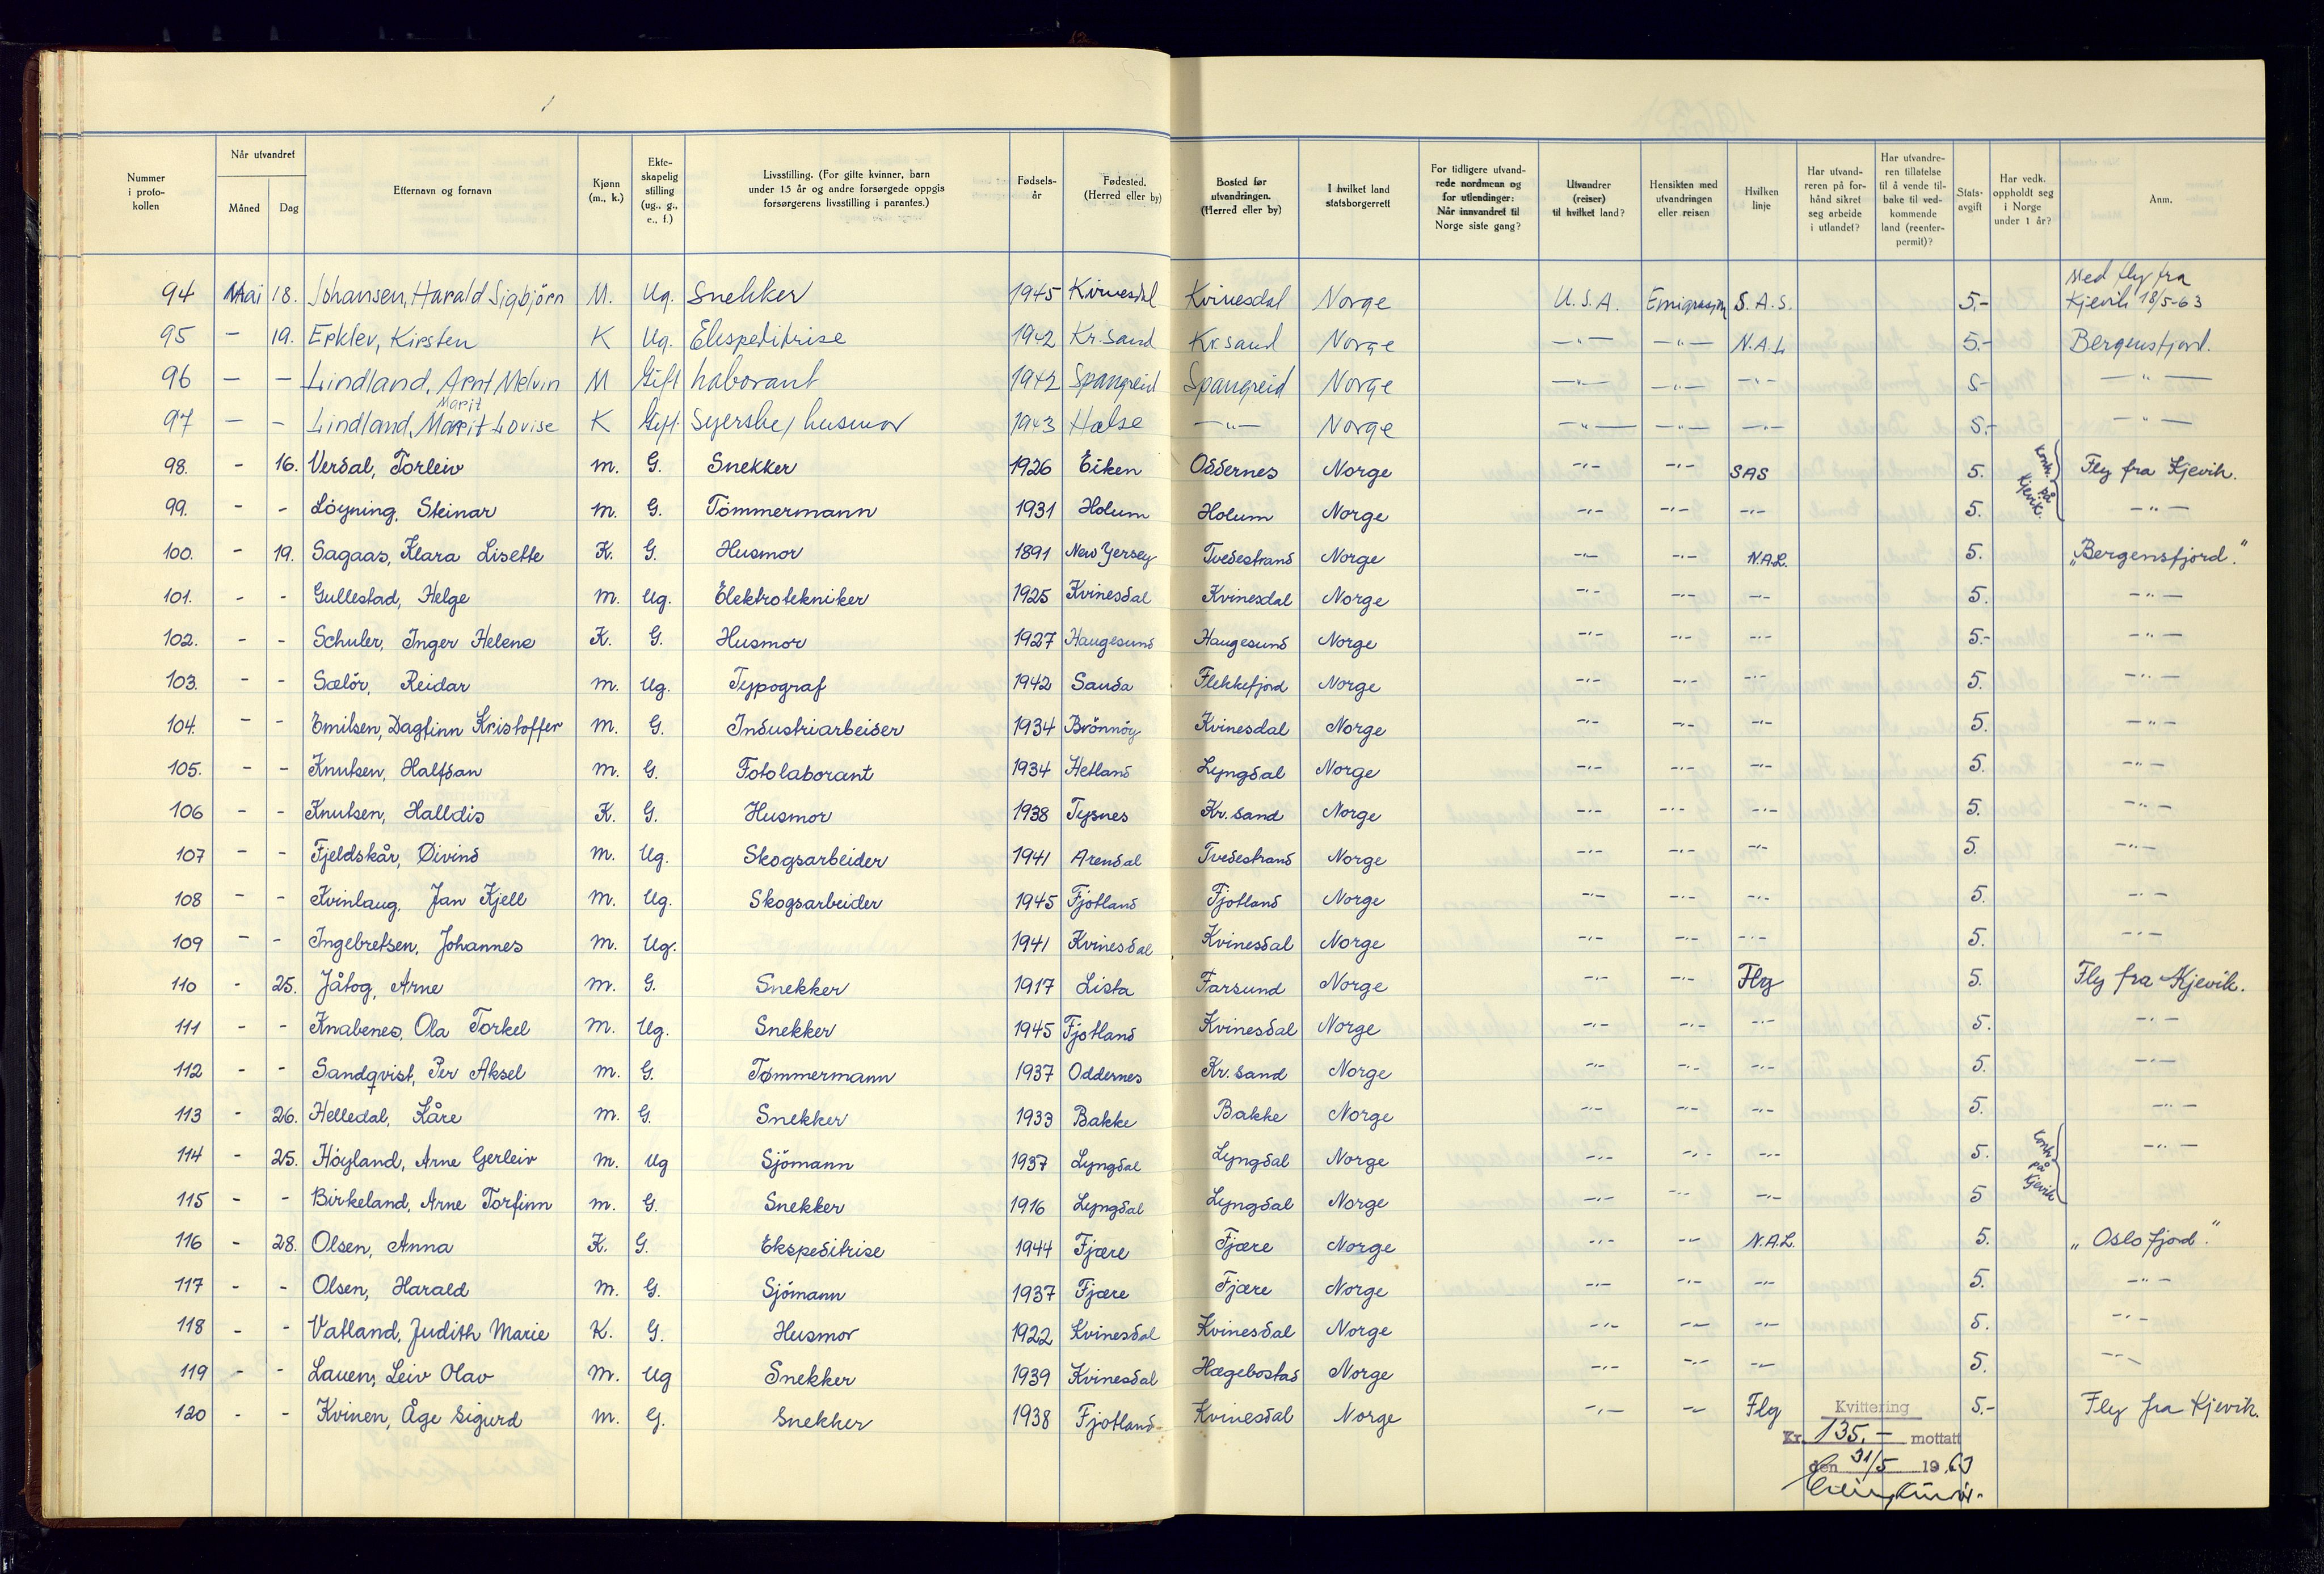 Nummer i proto-kollen | Når utvandret Måned | Dag | Etternavn og fornavn | Kjønn (m., k.) | Ekte-skapelig stilling (ug., g., e., f.) | Livsstilling. (For gifte kvinner, barn under 15 år og andre forsørgede oppgis forsørgerens livsstilling i parantes.) | Fødsels-år | Fødested. (Herred eller by) | Bosted før utvandringen. (Herred eller by) | I hvilket land statsborgerrett | For tidligere utvand-rede nordmenn og for utlendinger: Når innvandret til Norge siste gang? | Utvandrer (reiser) til hvilket land? | Hensikten med utvandringen eller reisen | Hvilken linje | Har utvand-reren på for-hånd sikret seg arbeide i utlandet? | Har utvandre-ren tillatelse til å vende til-bake til ved-kommende land (reenter-permit)? | Stats-avgift | Har vedk. oppholdt seg i Norge under 1 år? | Anm.
94 Mai 18. Johansen, Harald Sigbjörn M. Ug. Snekker 1945 Kvinesdal Kvinesdal Norge U.S.A. Emigrasjon S.A.S. 5.- Med fly fra Kjevik 18/5-63
95 - 19. Erklev, Kirsten K Ug. Ekspeditrise 1942 Kr.Sand Kr.sand Norge -"- -"- N.A.L 5.- Bergensfjord.
96 - - Lindland, Arnt Melvin M Gift Laborant 1942 Spangreid Spangreid Norge -"- -"- -"- 5- -"-
97 - - Lindland, Marit Marit Lovise K Gift. Syerske / husmor 1943 Halse -"- Norge -"- -"- -"- 5.- -"-
98. - 16. Verdal, Torleiv m. G. Snekker 1926 Eiken Oddernes Norge -"- -"- SAS 5. Kontr. på Kjevik. Fly fra Kjevik.
99. - - Löyning, Steinar m. G. Tömmermann 1931 Holum Holum Norge -"- -"- -"- 5. -"-
100. - 19. Sagaas, Klara Lisette K. G. Husmor 1891 New Yersey Tvedestrand Norge -"- -"- N.A.L. 5. „Bergensfjord."
101. - - Gullestad, Helge m. Ug. Elektrotekniker 1925 Kvinesdal Kvinesdal Norge -"- -"- -"- 5. -"-
102. - - Schuler, Inger Helene K. G. Husmor 1927 Haugesund Haugesund Norge -"- -"- -"- 5.- -"-
103. - - Sælör, Reidar m. Ug. Typograf 1942 Sauda Flekkefjord Norge -"- -"- -"- 5. -"-
104. - - Emilsen, Dagfinn Kristoffer m. G. Industriarbeider 1934 Brönnöy Kvinesdal Norge -"- -"- -"- 5. -"-
105. - - Knutsen, Halfdan m. G. Fotolaborant 1934 Hetland Lyngdal Norge -"- -"- -"- 5. -"-
106 - - Knutsen, Halldis K. G. Husmor 1938 Tysnes Kr. sand Norge -"- -"- -"- 5. -"-
107 - - Fjeldskår, Øivind m. Ug. Skogsarbeider 1941 Arendal Tvedestrand Norge -"- -"- -"- 5. -"-
108 - - Kvinlaug, Jan Kjell m. Ug. Skogsarbeider 1945 Fjotland Fjotland Norge -"- -"- -"- 5. -"-
109 - - Ingebretsen, Johannes m. Ug. 1941 Kvinesdal Kvinesdal Norge -"- -"- -"- 5. -"-
110 - 25. Jåtog, Arne m. G. Snekker 1917 Lista Farsund Norge -"- -"- Fly 5. Fly fra Kjevik.
111 - - Knabenes, Ola Torkel m. Ug. Snekker 1945 Fjotland Kvinesdal Norge -"- -"- -"- 5. -"-
112 - - Sandqvist, Per Aksel m. G. Tømmermann 1937 Oddernes Kr. sand Norge -"- -"- -"- 5. -"-
113 - 26. Helledal, Kåre m. G. Snekker 1933 Bakke Bakke Norge -"- -"- -"- 5. -"-
114 - 25. Höyland, Arne Gerleiv m. Ug Sjömann 1937 Lyngdal Lyngdal Norge -"- -"- -"- 5. Kontr. på Kjevik -"-
115 - - Birkeland, Arne Torfinn m. G. Snekker 1916 Lyngdal Lyngdal Norge -"- -"- -"- 5
116 - 28. Olsen, Anna K. G. Ekspeditrise 1944 Fjære Fjære Norge -"- -"- N.A.L. 5. „Oslofjord".
117 - - Olsen, Harald m. G. Sjömann 1937 Fjære Fjære Norge -"- -"- -"- 5. -"-
118 - - Vatland, Judith Marie K. G. Husmor 1922 Kvinesdal Kvinesdal Norge -"- -"- -"- 5. -"-
119 - - Lauen, Leiv Olav m. Ug Snekker 1939 Kvinesdal Hægebostad Norge -"- -"- -"- 5. -"-
120 - - Kvinen, Åge Sigurd m. G. Snekker 1938 Fjotland Kvinesdal Norge -"- -"- Fly 5.- Fly fra Kjevik.
Kvittering
Kr. 135.- mottatt
den 31/5 1963